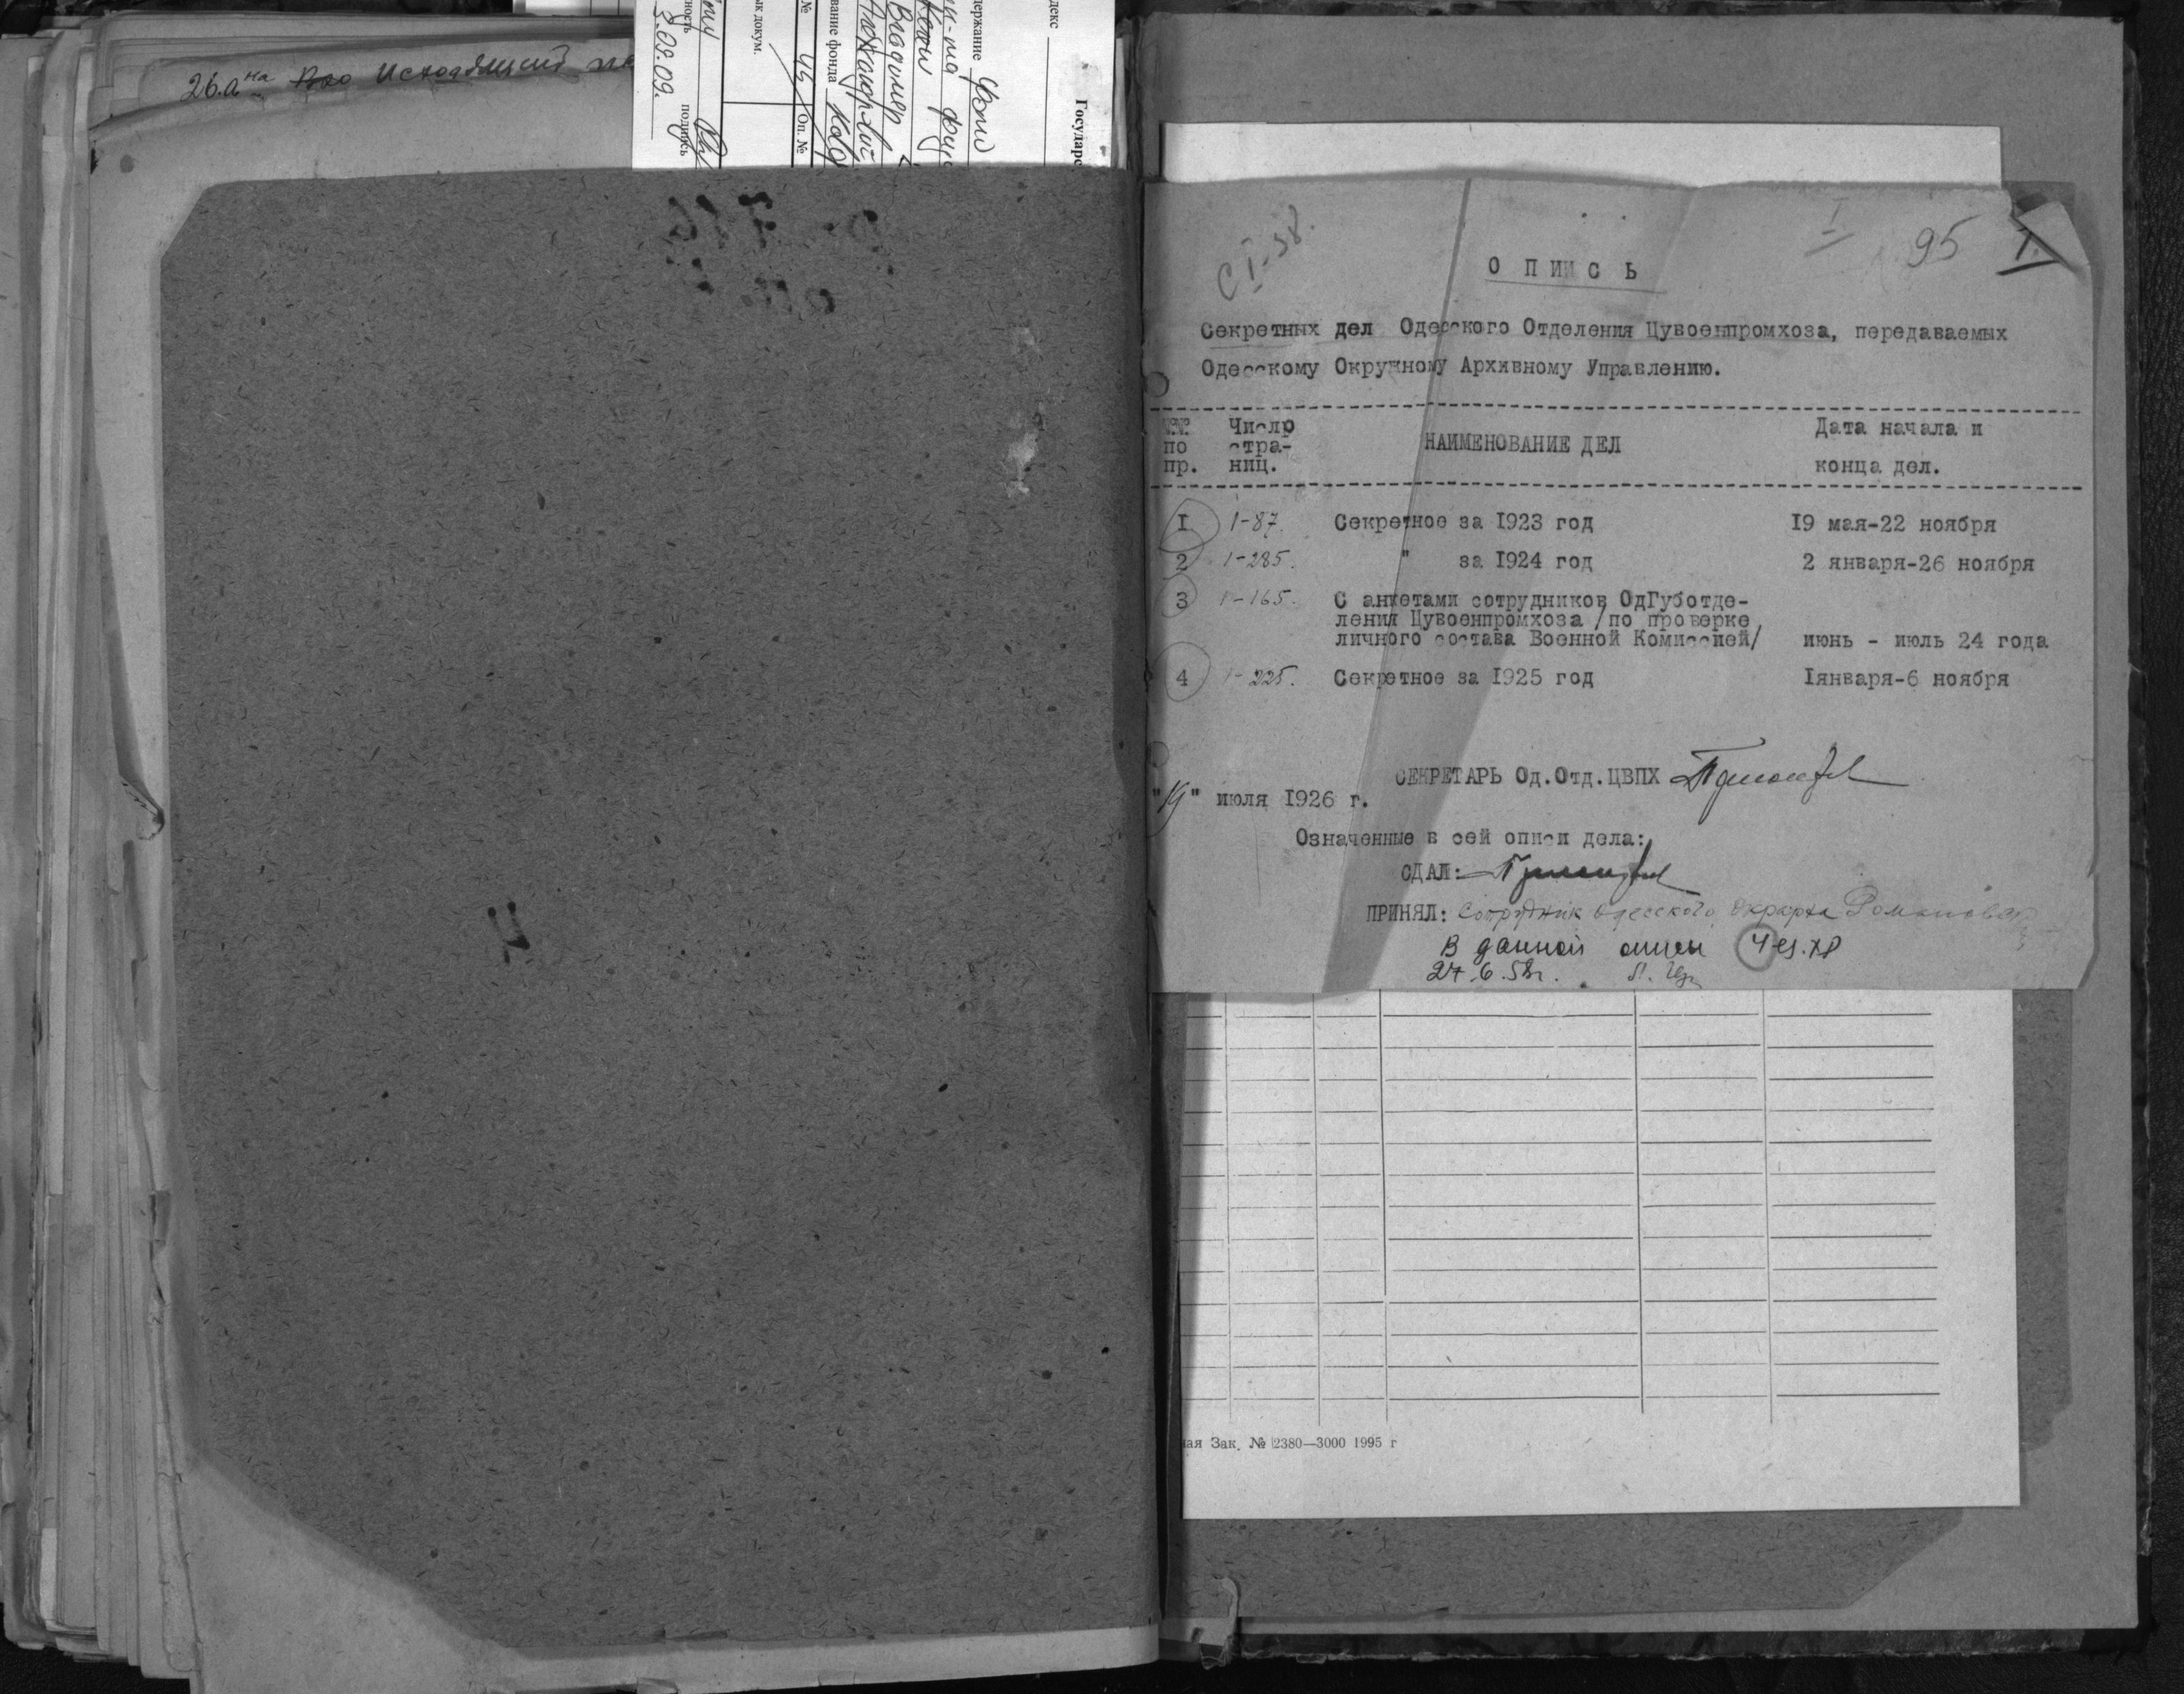 26.а на исходящий
Государс
декс
держание Фонд
Владимир
вание фонда
№ 45 Оп. №
ык докум.
ность подпись
3.09.09.
СI-58.
I
95
1.
О П И С Ь
Секретных дел Одесского Отделения Цувоенпромхоза, передаваемых
Одесскому Окружному Архивному Управлению.
№№ по пр. Число стра- ниц. НАИМЕНОВАНИЕ ДЕЛ Дата начала и конца дел.
I 1-87. Секретное за 1923 год 19 мая-22 ноября
2 1-285. " за 1924 год 2 января-26 ноября
3 1-165. С анкетами сотрудников ОдГуботде-
ления Цувоенпромхоза /по проверке
личного состава Военной Комиссией/ июнь - июль 24 года
4 1-225. Секретное за 1925 год 1января-6 ноября
СЕКРЕТАРЬ Од.Отд.ЦВПХ
"19" июля 1926 г.
Означенные в сей описи дела:
СДАЛ:
ПРИНЯЛ: Сотрудник Одесского Окрарха Романова
В данной описи 4 ед.хр
27.6.58г.
ная Зак. № 2380—3000 1995 г